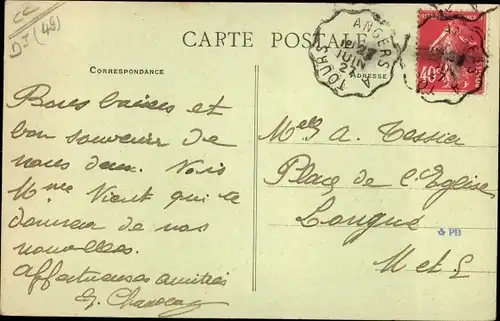 CC
D.I (49)
CARTE POSTALE
CORRESPONDANCE
ADRESSE
ANGERS A TOURS
23
JUIN
40c
Bons baisers et
bon souvenir de
nous deux. Vois
Mme Vient qui te
donnera de nos
nouvelles.
Affectueuses amitiés
Melle A. Tessier
Place de l'Eglise
Longué
M et L
PB